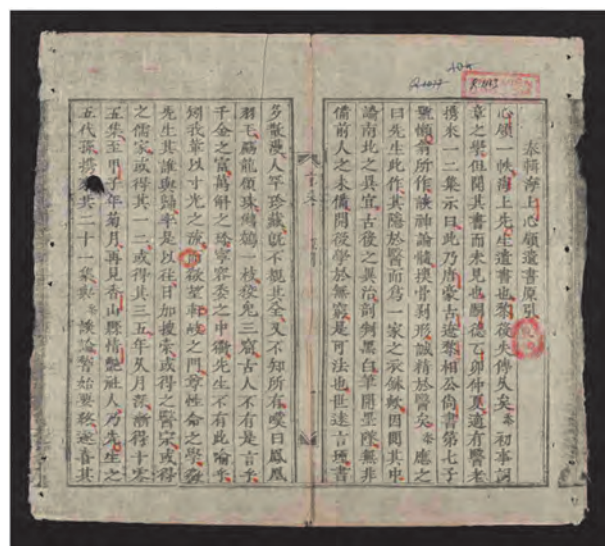 奉輯海上心領遺書原引
心領一帙海上先生遺書也黎後失傳久矣 初事詞
章之學但聞其書而未見也嗣德乙卯仲夏適有醫老
攜來一二集示曰此乃唐豪古遼黎相公尚書第七子
號懶翁所作談神論髓換骨刳形誠精於醫矣 應之
曰先生此作其隱於醫而為一家之衣鉢歟因閱其中
論南北之異宜古後之異治剖判黑白筆闢墨隊無非
備前人之未備開後學於無窮是可法也世遠言湮書
多散漫人罕珍藏既不覩其全又不知所有嘆曰鳳凰
羽毛驪龍頷珠鷦鷯一枝狡兔三窟古人不有是言乎
千金之富萬斛之珍寧容委之中衢先生不有此喻乎
矧我輩以寸光之 而欲望軒岐之門尊性命之學 
先生其誰與歸率是以往日加搜索或得之醫宗或得
之儒家或得其一二或得其三五年久月深漸得十零
五集至甲子年菊月再見香山縣情艷社人乃先生之
五代孫攜 其二十一集與 談論醫始要終遂喜其